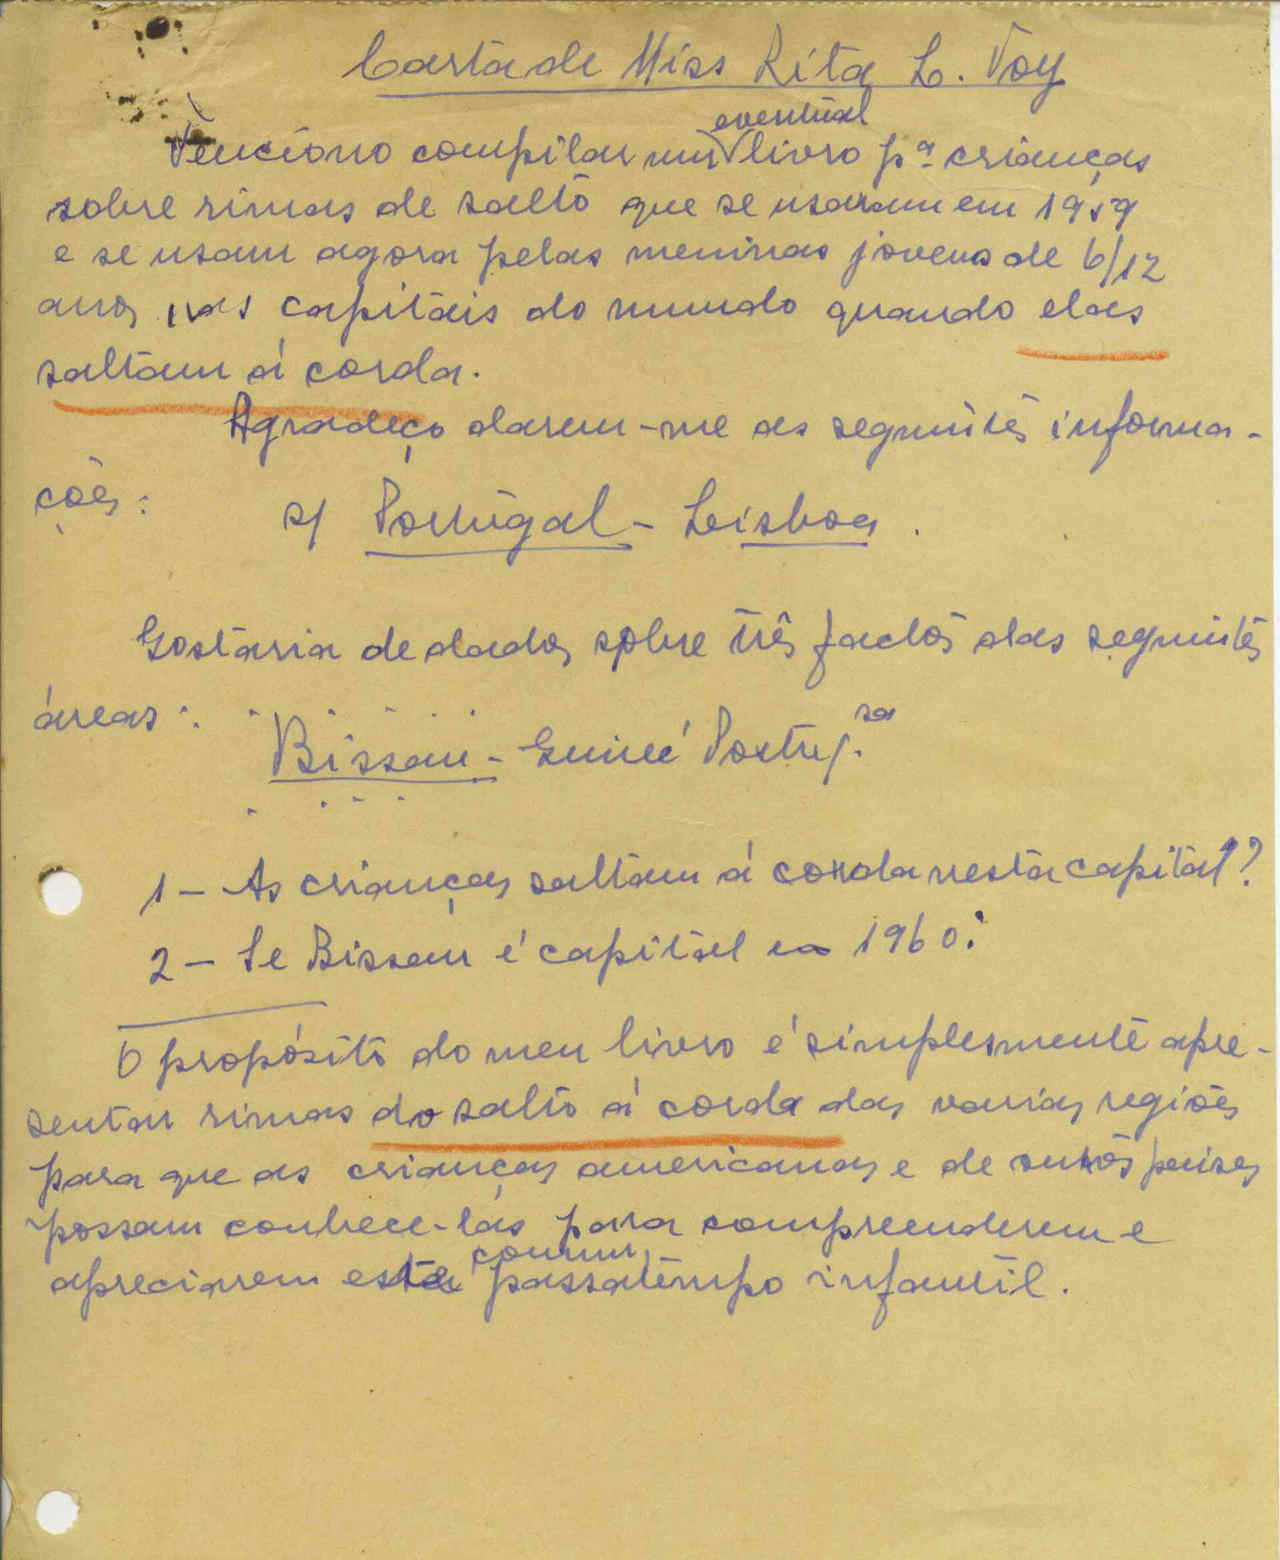 Carta de Miss Rita L. Voy
eventual
Tenciono compilar um livro pª crianças
sobre rimas de salto que se usaram em 1959
e se usam agora pelas meninas jovens de 6/12
anos nas capitais do mundo quando elas
saltam á corda.
Agradeço darem-me as seguintes informa-
ções:
s/ Portugal - Lisboa.
Gostaria de dados sobre três factos das seguintes
áreas:
Bissau - Guiné Portug.sa
1 - As crianças saltam á corda nesta capital?
2 - Se Bissau é capital em 1960?
O propósito do meu livro é simplesmente apre-
sentar rimas do salto á corda das varias regiões
para que as crianças americanas e de outros paises
possam conhece-las para compreenderem e
comum
apreciarem este passatempo infantil.